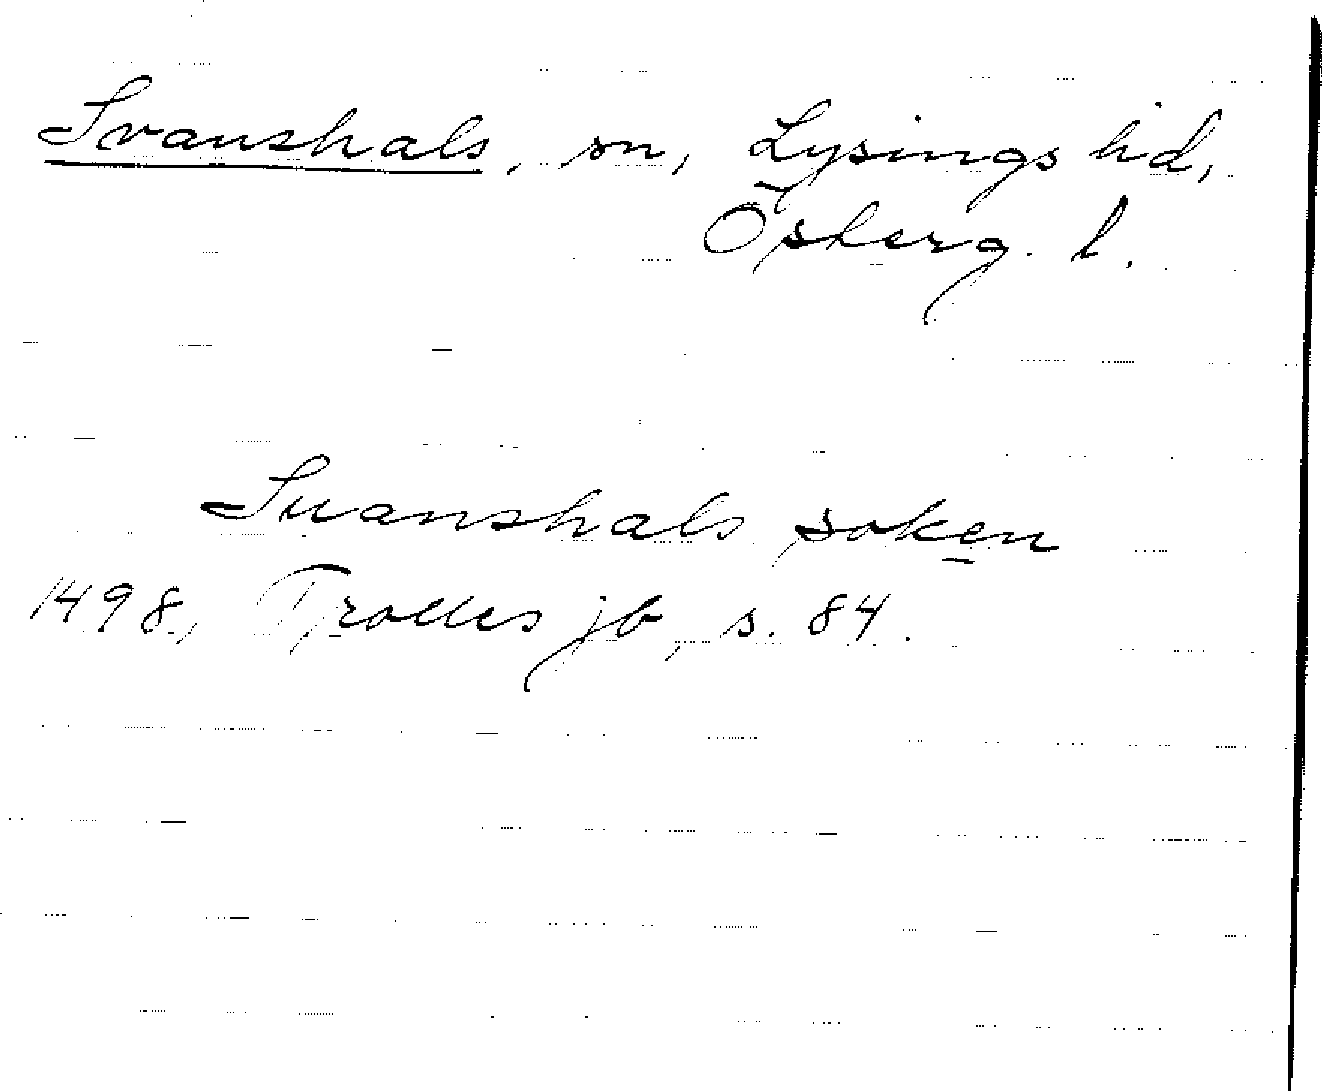 Svanshals, sn, Lysings hd,
Österg. l.
Suanshals soken
1498, Trolles jb, s. 84.